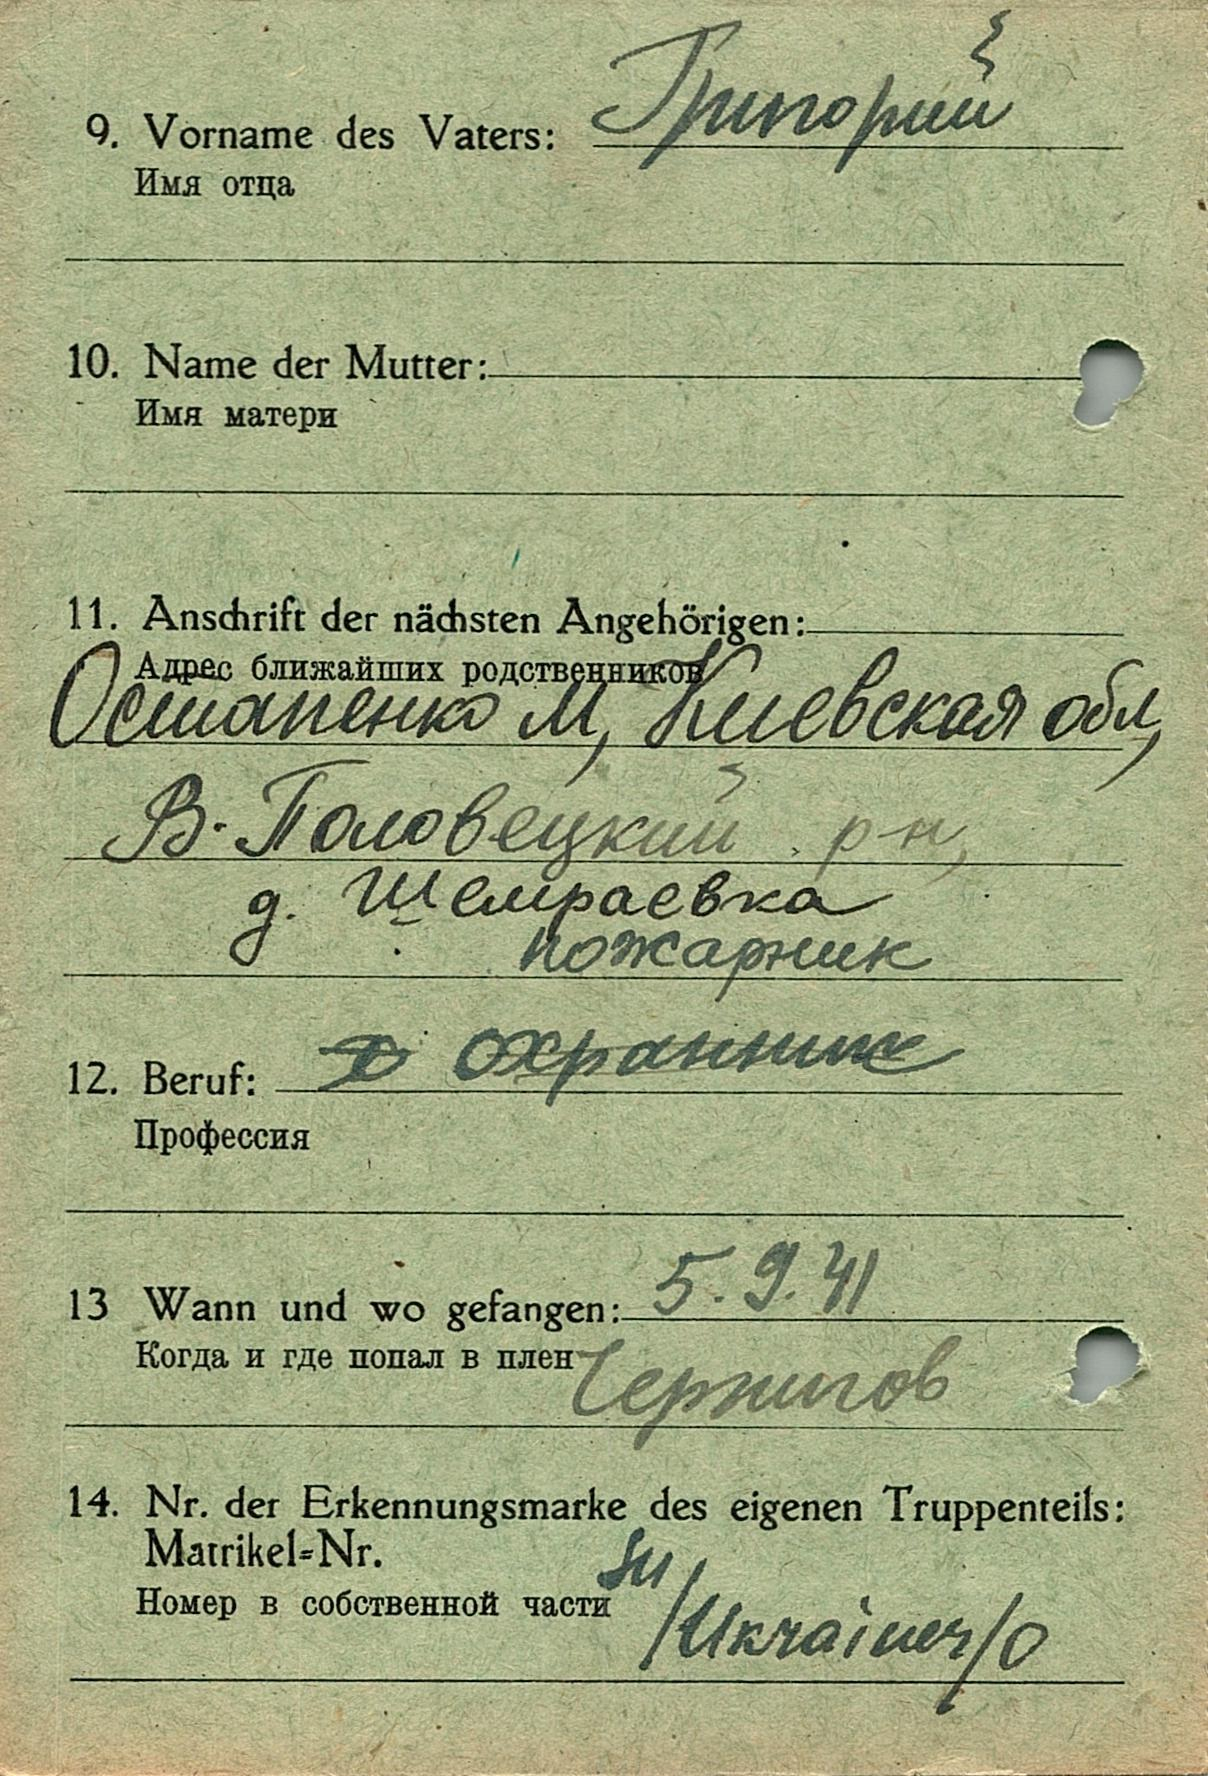 9. Vorname des Vaters: Григорий
Имя отца
10. Name der Mutter:
Имя матери
11. Anschrift der nächsten Angehörigen:
Адрес ближайших родственников
Остапенко М, Киевская обл,
В-Половецкий р-н,
д. Шемраевка
пожарник
12. Beruf: охранник
Профессия
13 Wann und wo gefangen: 5.9.41
Когда и где попал в плен Чернигов
14. Nr. der Erkennungsmarke des eigenen Truppenteils:
Matrikel=Nr.
Номер в собственной части
/Ukrainer/o